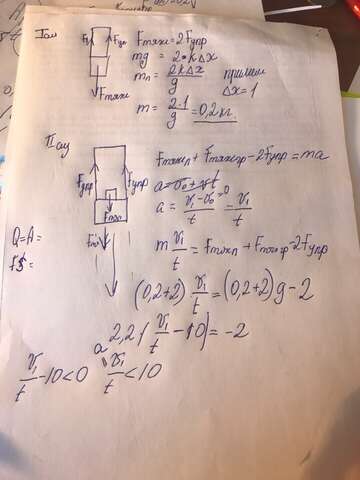 I сл
Fу Fупр
Fтяж = 2Fупр
mg = 2·kΔx
mп = 2kΔx/g
примем Δx = 1
m = 2·1/g = 0,2 кг.
Fтяж
II сл
Fтяжп + Fтяжгр − 2Fупр = ma
Fупр Fупр
a = v0 + vt
a = v1 − v0=0/t = v1/t
Q = A =
m v1/t = Fтяжп + Fтяжгр − 2Fупр
(0,2+2) v1/t = (0,2+2)g − 2
2,2 ( v1/t − 10) = −2
v1/t − 10 < 0 v1/t < 10